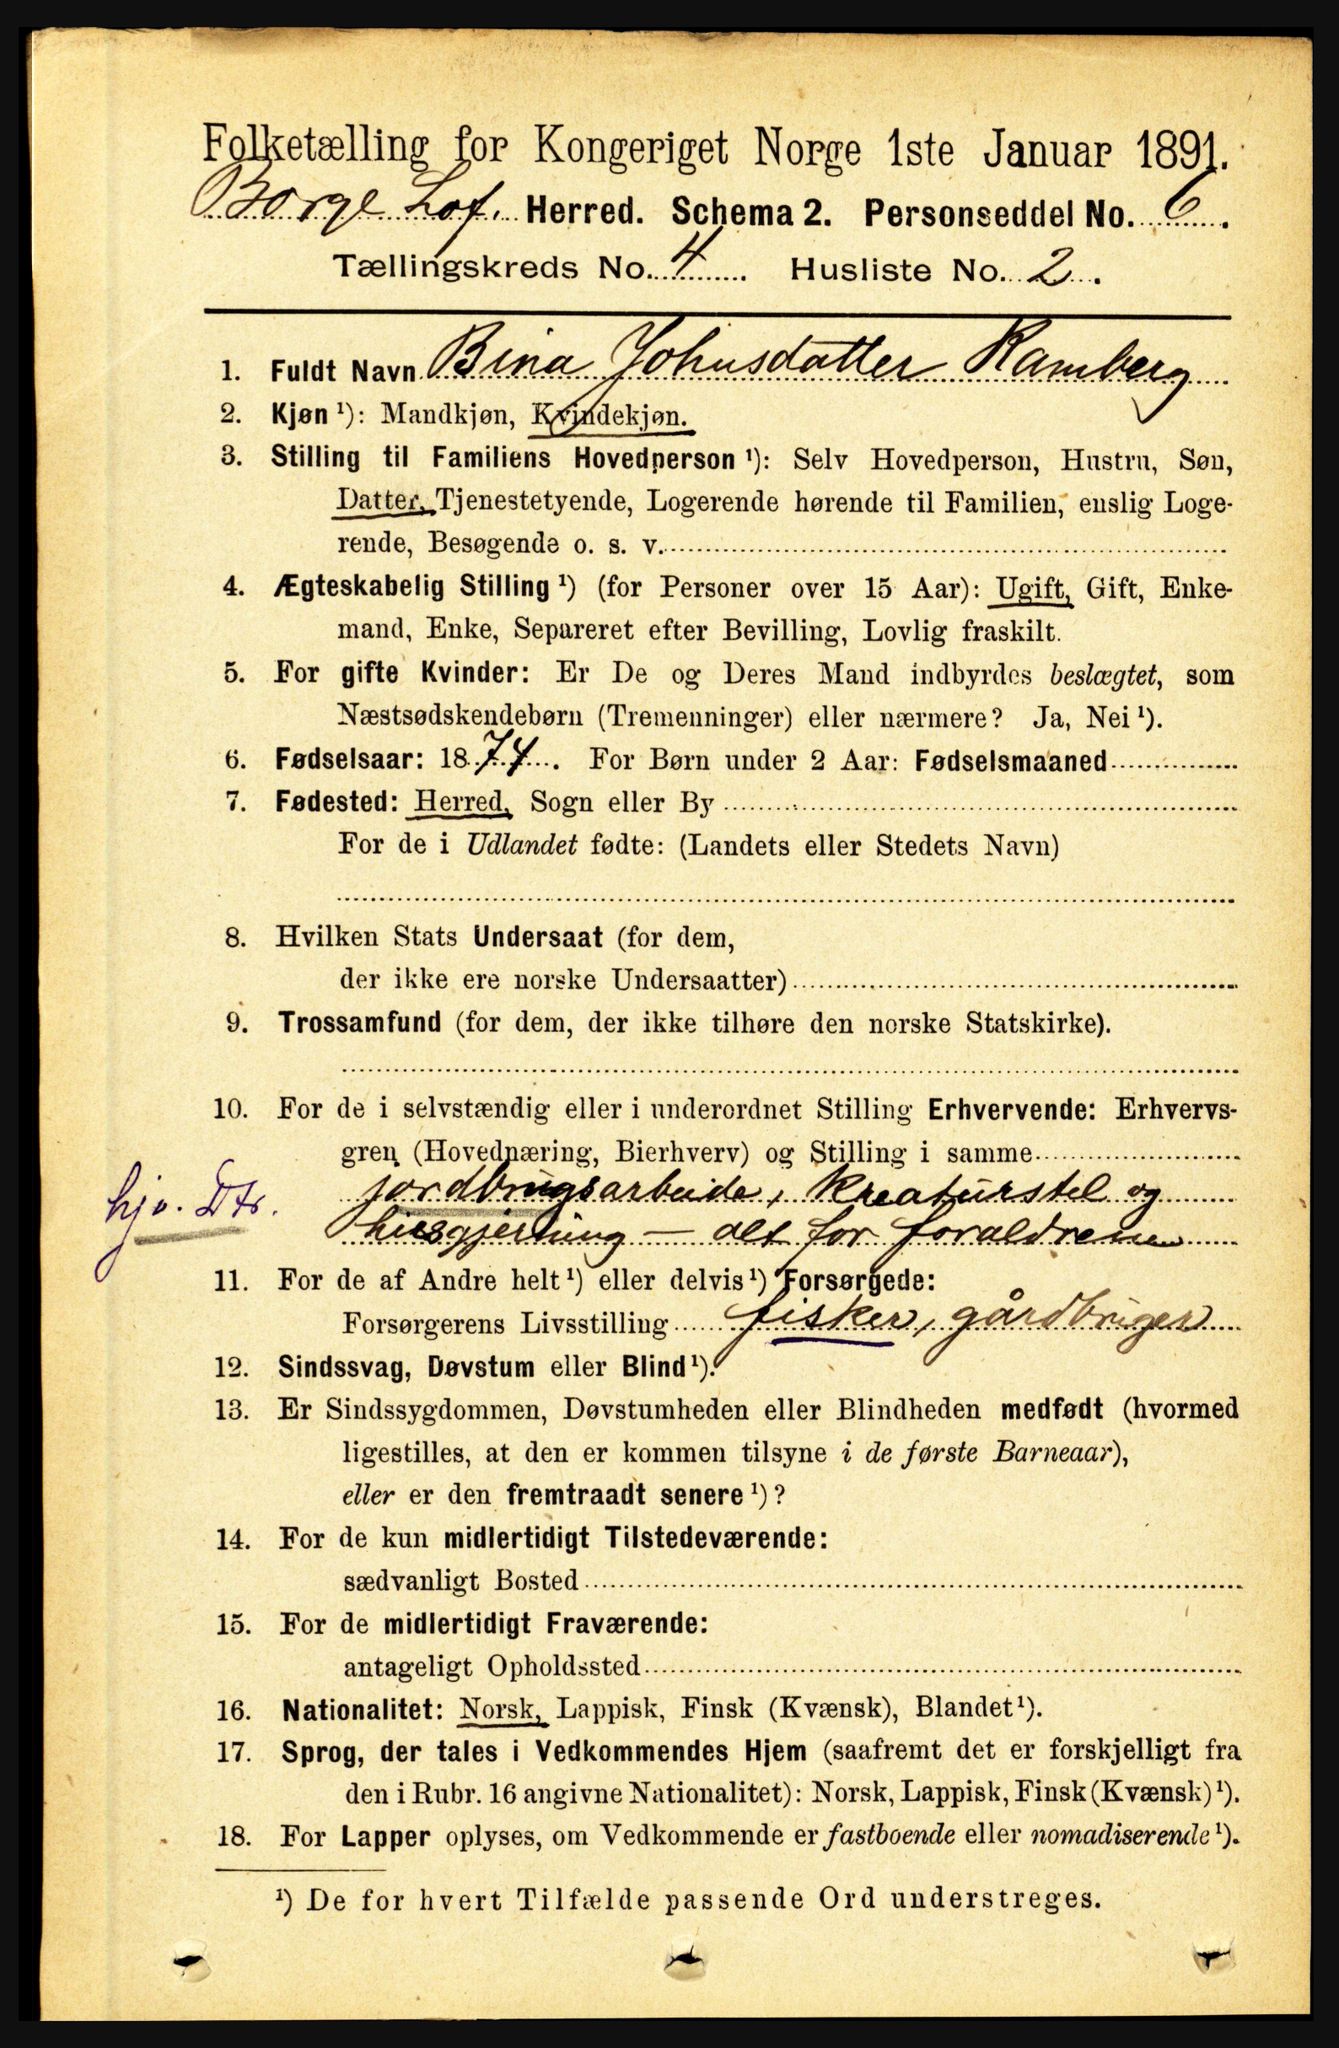 Folketælling for Kongeriget Norge 1ste Januar 1891.
Borge Lof. Herred. Schema 2. Personseddel No. 6.
Tællingskreds No. 4. Husliste No. 2.
1. Fuldt Navn Bina Johnsdatter Ramberg
2. Kjøn ¹): Mandkjøn, Kvindekjøn.
3. Stilling til Familiens Hovedperson ¹): Selv Hovedperson, Hustru, Søn,
Datter, Tjenestetyende, Logerende hørende til Familien, enslig Loge-
rende, Besøgende o. s. v.
4. Ægteskabelig Stilling ¹) (for Personer over 15 Aar): Ugift, Gift, Enke-
mand, Enke, Separeret efter Bevilling, Lovlig fraskilt.
5. For gifte Kvinder: Er De og Deres Mand indbyrdes beslægtet, som
Næstsødskendebørn (Tremenninger) eller nærmere? Ja, Nei ¹).
6. Fødselsaar: 1874. For Børn under 2 Aar: Fødselsmaaned
7. Fødested: Herred, Sogn eller By
For de i Udlandet fødte: (Landets eller Stedets Navn)
8. Hvilken Stats Undersaat (for dem,
der ikke ere norske Undersaatter)
9. Trossamfund (for dem, der ikke tilhøre den norske Statskirke).
10. For de i selvstændig eller i underordnet Stilling Erhvervende: Erhvervs-
gren (Hovednæring, Bierhverv) og Stilling i samme
hjv. Dtr. jordbrugsarbeide, kreaturstel og
husgjerning — alt for foraldrene
11. For de af Andre helt ¹) eller delvis ¹) Forsørgede:
Forsørgerens Livsstilling fisker, gårdbruger
12. Sindssvag, Døvstum eller Blind ¹).
13. Er Sindssygdommen, Døvstumheden eller Blindheden medfødt (hvormed
ligestilles, at den er kommen tilsyne i de første Barneaar),
eller er den fremtraadt senere ¹)?
14. For de kun midlertidigt Tilstedeværende:
sædvanligt Bosted
15. For de midlertidigt Fraværende:
antageligt Opholdssted
16. Nationalitet: Norsk, Lappisk, Finsk (Kvænsk), Blandet ¹).
17. Sprog, der tales i Vedkommendes Hjem (saafremt det er forskjelligt fra
den i Rubr. 16 angivne Nationalitet): Norsk, Lappisk, Finsk (Kvænsk) ¹).
18. For Lapper oplyses, om Vedkommende er fastboende eller nomadiserende ¹).
¹) De for hvert Tilfælde passende Ord understreges.